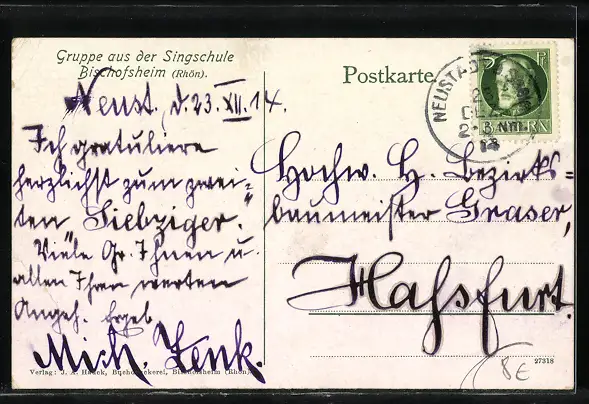 Gruppe aus der Singschule
Bischofsheim (Rhön).
Postkarte
Neust. d. 23. XII. 14.
Ich gratuliere
herzlichst zum zwei=
ten Siebziger.
Viele Gr. Ihnen u.
allen Ihren werten
Angeh. Ergeb.
Mich. Zenk.
Hochw. H. Bezirks=
baumeister Graser,
Hassfurt.
NEUSTADT
DEZ
2-3 Nm.
14
BAYERN
27318
8€
Verlag: J. A. Hauck, Buchdruckerei, Bischofsheim (Rhön)